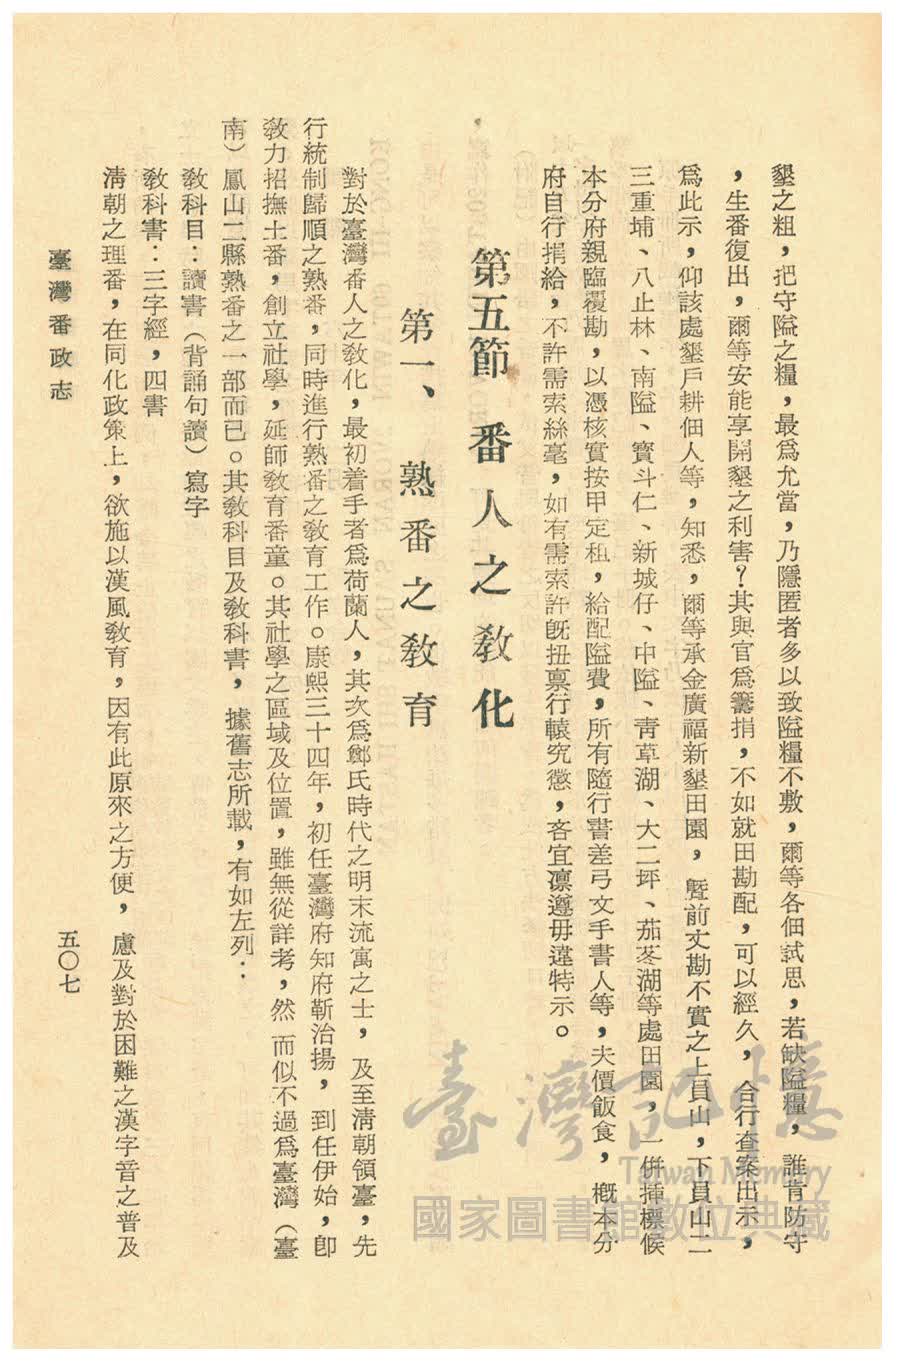 墾之粗，把守隘之糧，最爲允當，乃隱匿者多以致隘糧不敷，爾等各佃試思，若缺隘糧，誰肯防守
，生番復出，爾等安能享開墾之利害？其與官爲捐，不如就田勘配，可以經久，合行查案出示，
爲此示，仰該處墾戶耕佃人等，知悉，爾等承金廣福新墾田園，曁前丈勘不實之上員山，下員山二
三重埔、八止林、南隘、寳斗仁、新城仔、中隘、靑草湖、大二坪、茄苳湖等處田園，一倂揷標候
本分府親臨覆勘，以憑核實按甲定租，給配隘費，所有隨行書差弓文手書人等，夫價飯食，槪本分
府自行捐給，不許需索絲毫，如有需索許旣扭禀行轅究懲，各宜凛遵毋違特示。
第五節 番人之敎化
第一、熟番之敎育
對於臺灣番人之敎化，最初着手者爲荷蘭人，其次爲鄭氏時代之明末流寓之士，及至淸朝領臺，先
行統制歸順之熟番，同時進行熟番之敎育工作。康熙三十四年，初任臺灣府知府靳治揚，到任伊始，卽
敎力招撫土番，創立社學，延師敎育番童。其社學之區域及位置，雖無從詳考，然而似不過爲臺灣（臺
南）鳳山二縣熟番之一部而已。其敎科目及敎科書，據舊志所載，有如左列：
敎科目：讀書（背誦句讀）寫字
敎科書：三字經，四書
淸朝之理番，在同化政策上，欲施以漢風敎育，因有此原來之方便，慮及對於困難之漢字音之普及
臺灣番政志
五〇七
臺灣記憶
Taiwan Memory
國家圖書館數位典藏